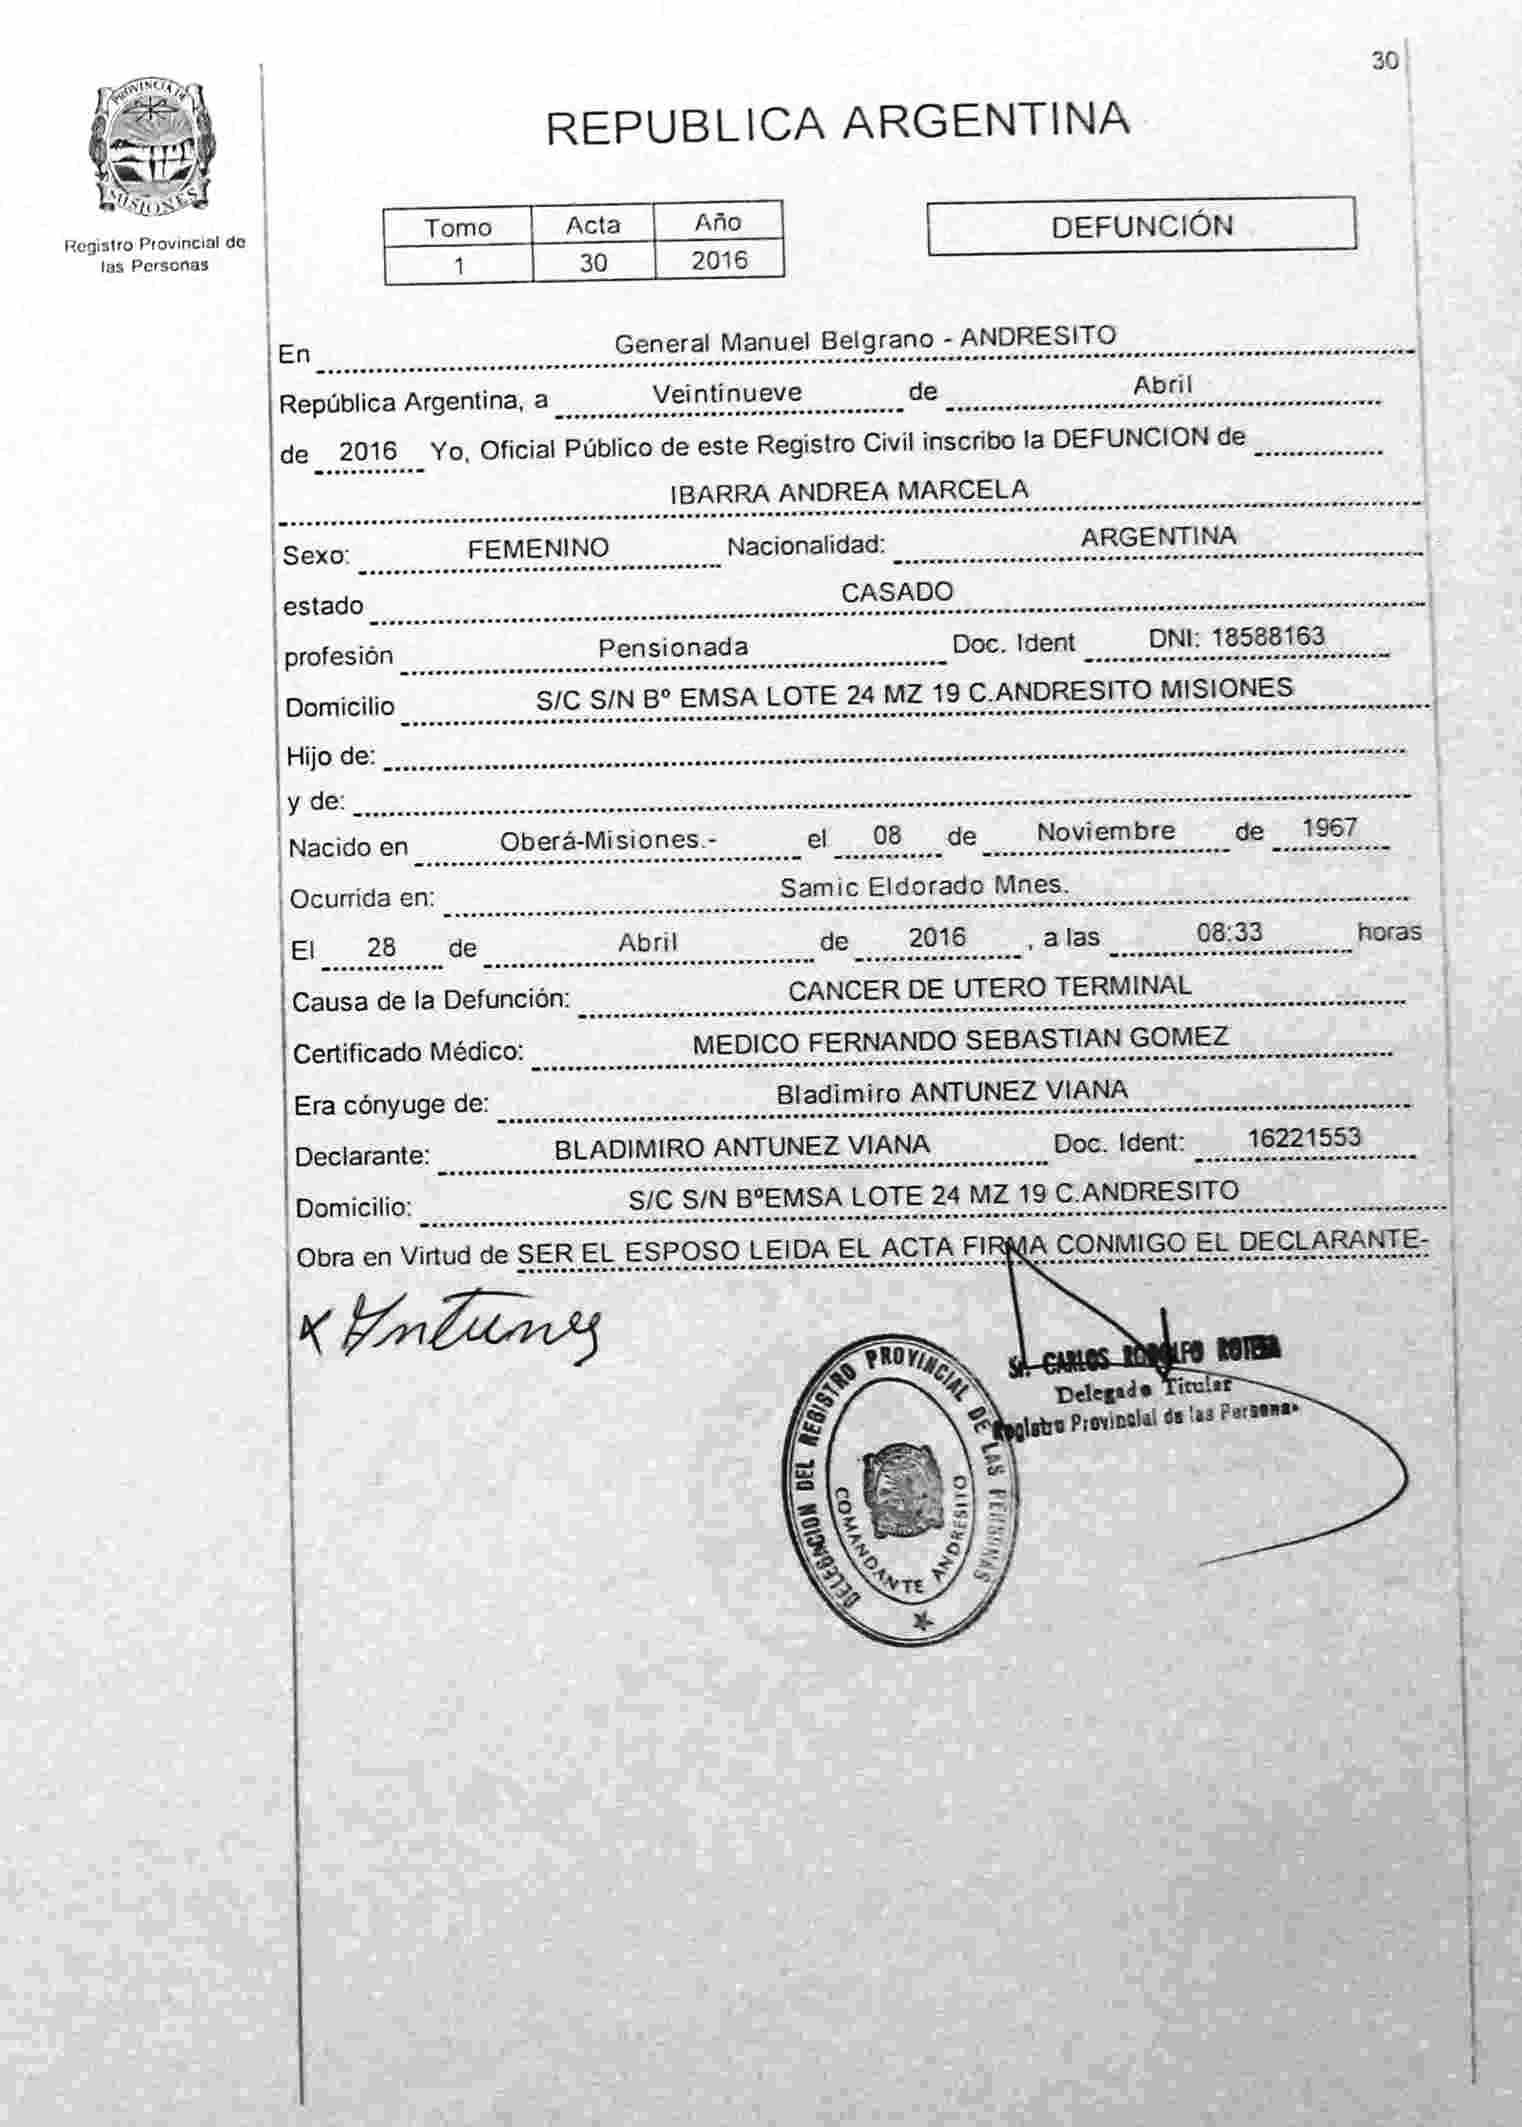 30
PROVINCIA DE
MISIONES
Registro Provincial de
las Personas
REPUBLICA ARGENTINA
Tomo Acta Año
1 30 2016
DEFUNCIÓN
En General Manuel Belgrano - ANDRESITO
República Argentina, a Veintinueve de Abril
de 2016 Yo, Oficial Público de este Registro Civil inscribo la DEFUNCION de
IBARRA ANDREA MARCELA
Sexo: FEMENINO Nacionalidad: ARGENTINA
estado CASADO
profesión Pensionada Doc. Ident DNI: 18588163
Domicilio S/C S/N Bº EMSA LOTE 24 MZ 19 C.ANDRESITO MISIONES
Hijo de:
y de:
Nacido en Oberá-Misiones.- el 08 de Noviembre de 1967
Ocurrida en: Samic Eldorado Mnes.
El 28 de Abril de 2016 , a las 08:33 horas
Causa de la Defunción: CANCER DE UTERO TERMINAL
Certificado Médico: MEDICO FERNANDO SEBASTIAN GOMEZ
Era cónyuge de: Bladimiro ANTUNEZ VIANA
Declarante: BLADIMIRO ANTUNEZ VIANA Doc. Ident: 16221553
Domicilio: S/C S/N BºEMSA LOTE 24 MZ 19 C.ANDRESITO
Obra en Virtud de SER EL ESPOSO LEIDA EL ACTA FIRMA CONMIGO EL DECLARANTE-
x Antunez
Sr. CARLOS RODOLFO
Delegado Titular
Registro Provincial de las Personas
DELEGACION DEL REGISTRO PROVINCIAL DE LAS PERSONAS
COMANDANTE ANDRESITO